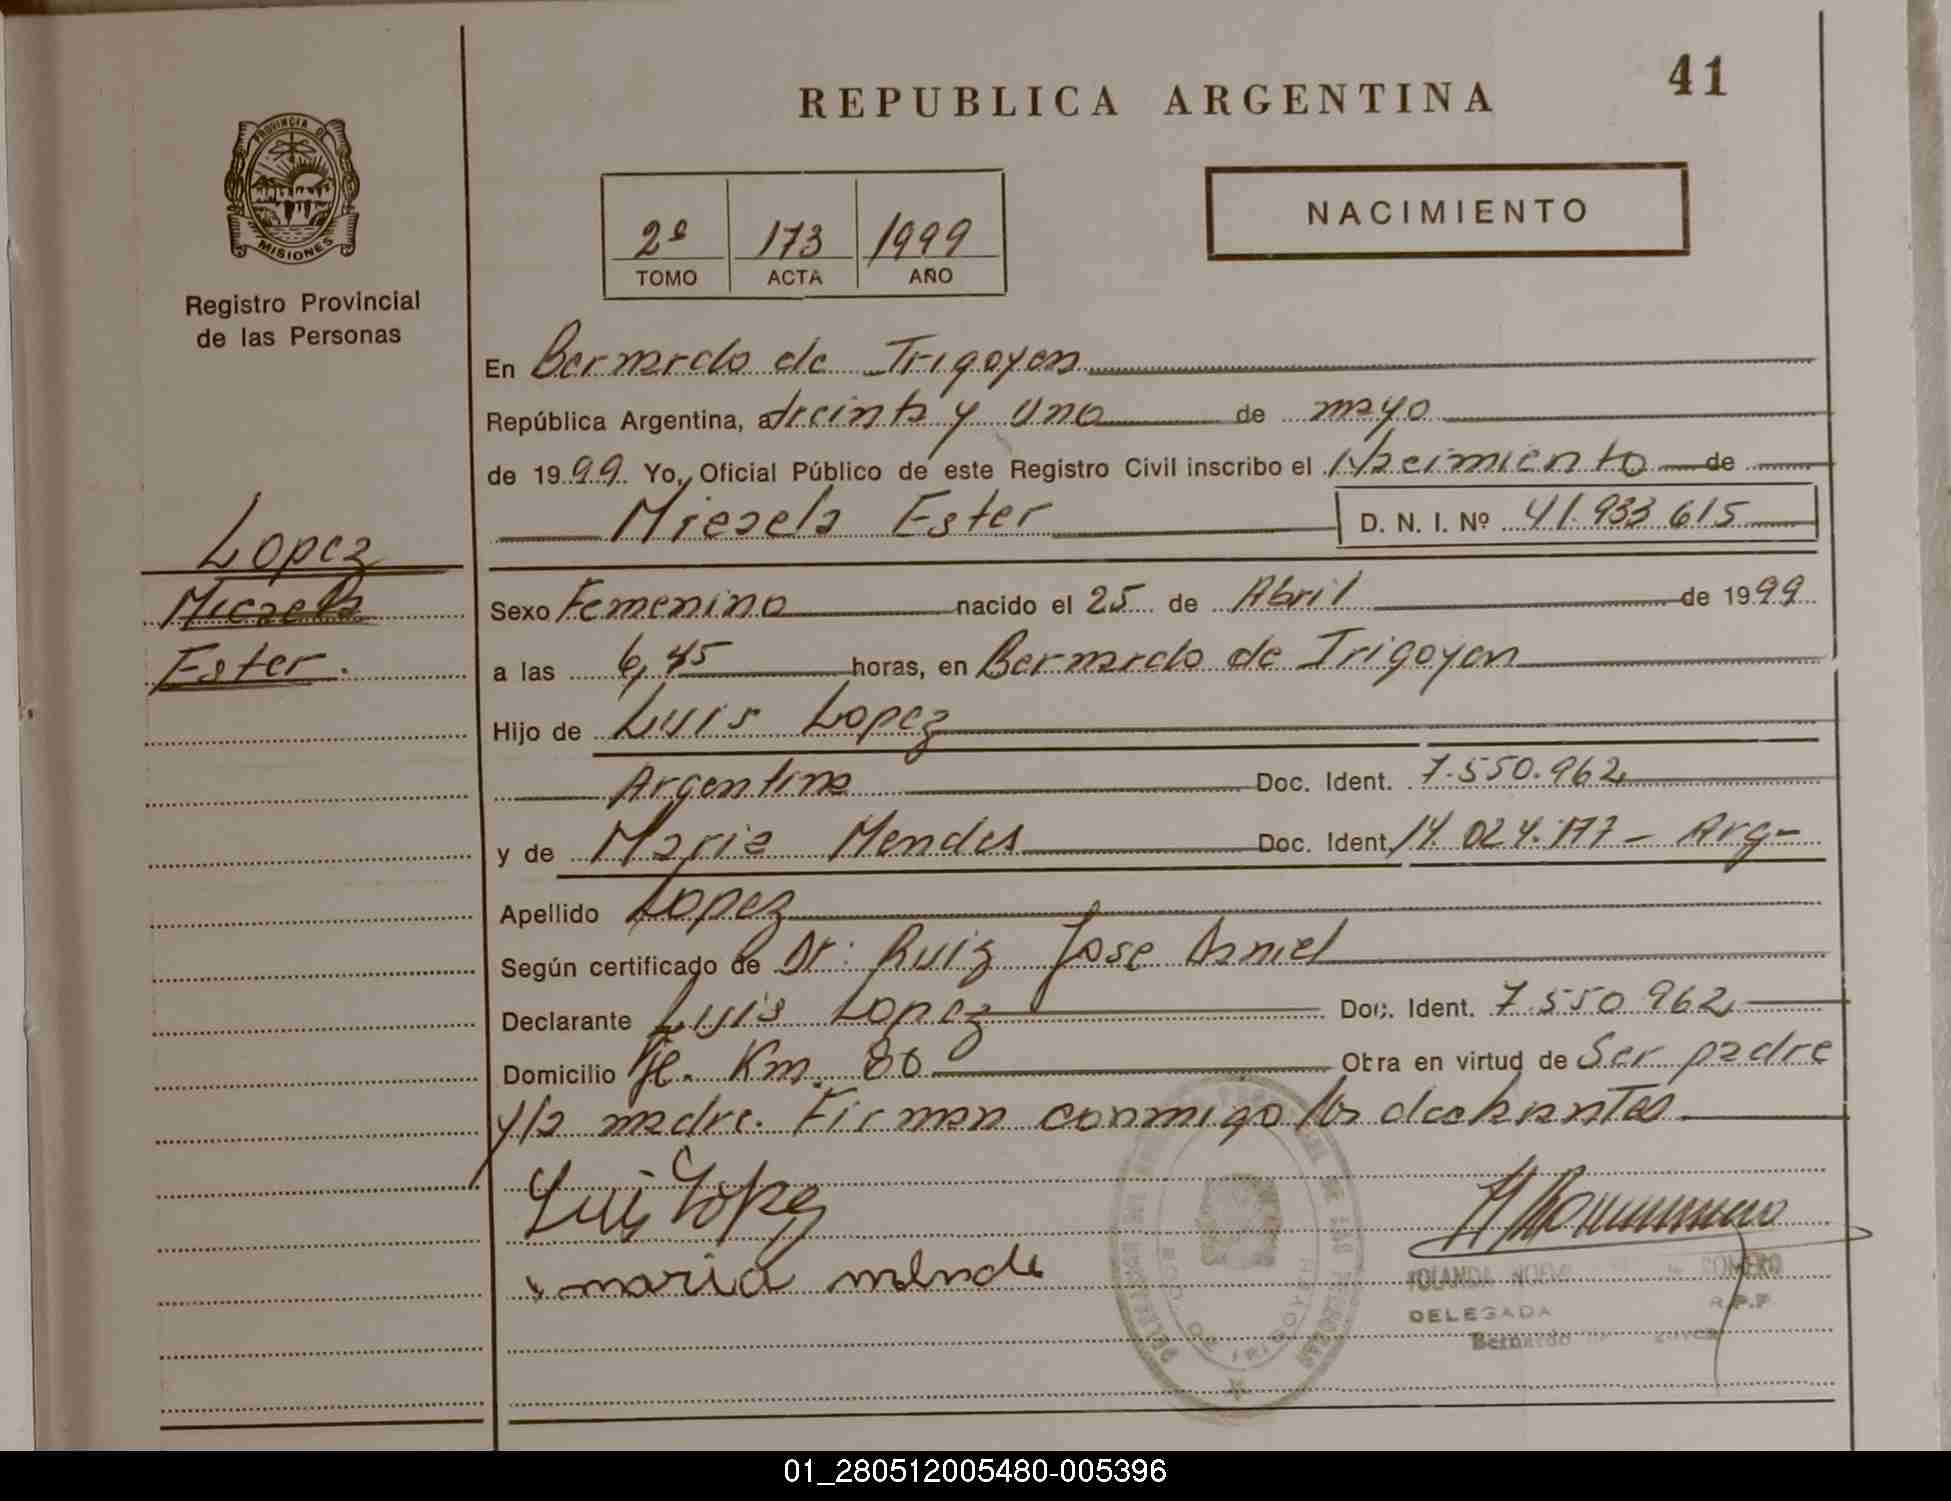 REPUBLICA ARGENTINA
41
PROVINCIA DE
MISIONES
Registro Provincial
de las Personas
2º 173 1999
TOMO ACTA AÑO
NACIMIENTO
En Bernardo de Irigoyen
República Argentina, a treinta y uno de mayo
de 1999 Yo, Oficial Público de este Registro Civil inscribo el Nacimiento de
Micaela Ester D. N. I. Nº 41.933.615
Lopez
Micaela
Ester.
Sexo Femenino nacido el 25 de Abril de 1999
a las 6,45 horas, en Bernardo de Irigoyen
Hijo de Luis Lopez
Argentino Doc. Ident. 7.550.962
y de Maria Mendes Doc. Ident. 14.024.177 - Arg-
Apellido Lopez
Según certificado de Dr: Ruiz Jose Daniel
Declarante Luis Lopez Doc. Ident. 7.550.962
Domicilio Km. 80 Obra en virtud de Ser padre
y la madre. Firman conmigo los declarantes
Luis Lopez
maria mende
YOLANDA ROMERO
DELEGADA R.P.P.
Bernardo
DE IRIGOYEN
01_280512005480-005396